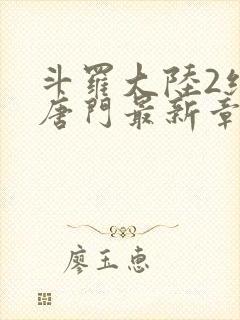 斗羅大陸2絕
唐門最新章
廖玉惠